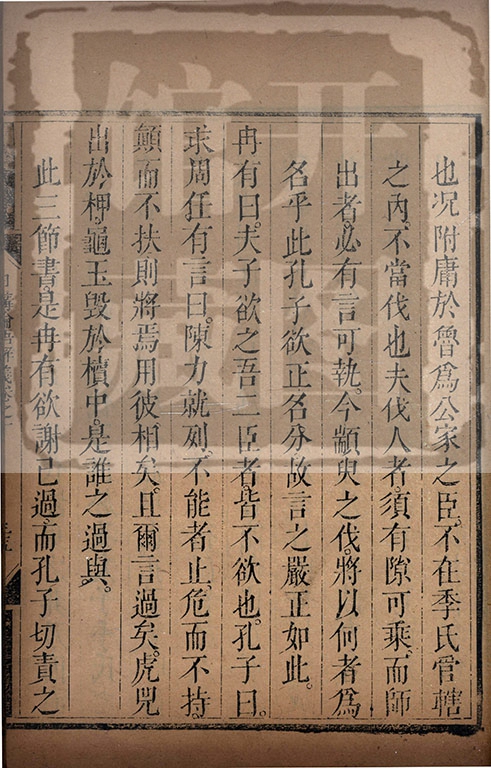 也況附庸於魯爲公家之臣不在季氏管轄
之內不當伐也夫伐人者須有隙可乘而師
出者必有言可執今顓臾之伐將以何者爲
名乎此孔子欲正名分故言之嚴正如此
冉有曰夫子欲之吾二臣者皆不欲也孔子曰
求周任有言曰陳力就列不能者止危而不持
顚而不扶則將焉用彼相矣且爾言過矣虎兕
出於柙龜玉毀於櫝中是誰之過與
此三節書是冉有欲謝已過而孔子切責之